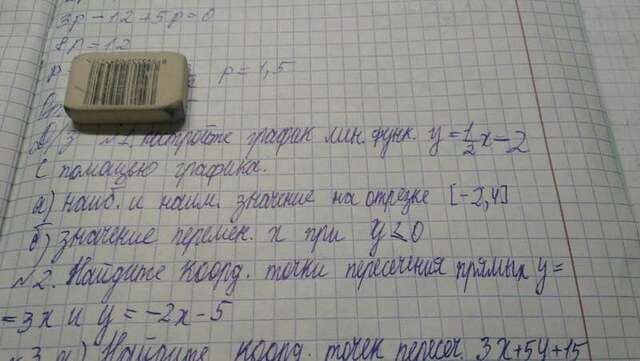 3p-12+5p=0
8p=12
p p=1,5
Д/з №1. Постройте график лин. функ. y=1/2x-2
С помощью графика.
а) наиб. и наим. значение на отрезке [-2,4]
б) значение перемен. x при y≤0
№2. Найдите коорд. точки пересечения прямых y=
=3x и y=-2x-5
№3 а) Найдите коорд. точек пересеч. 3x+5y+15